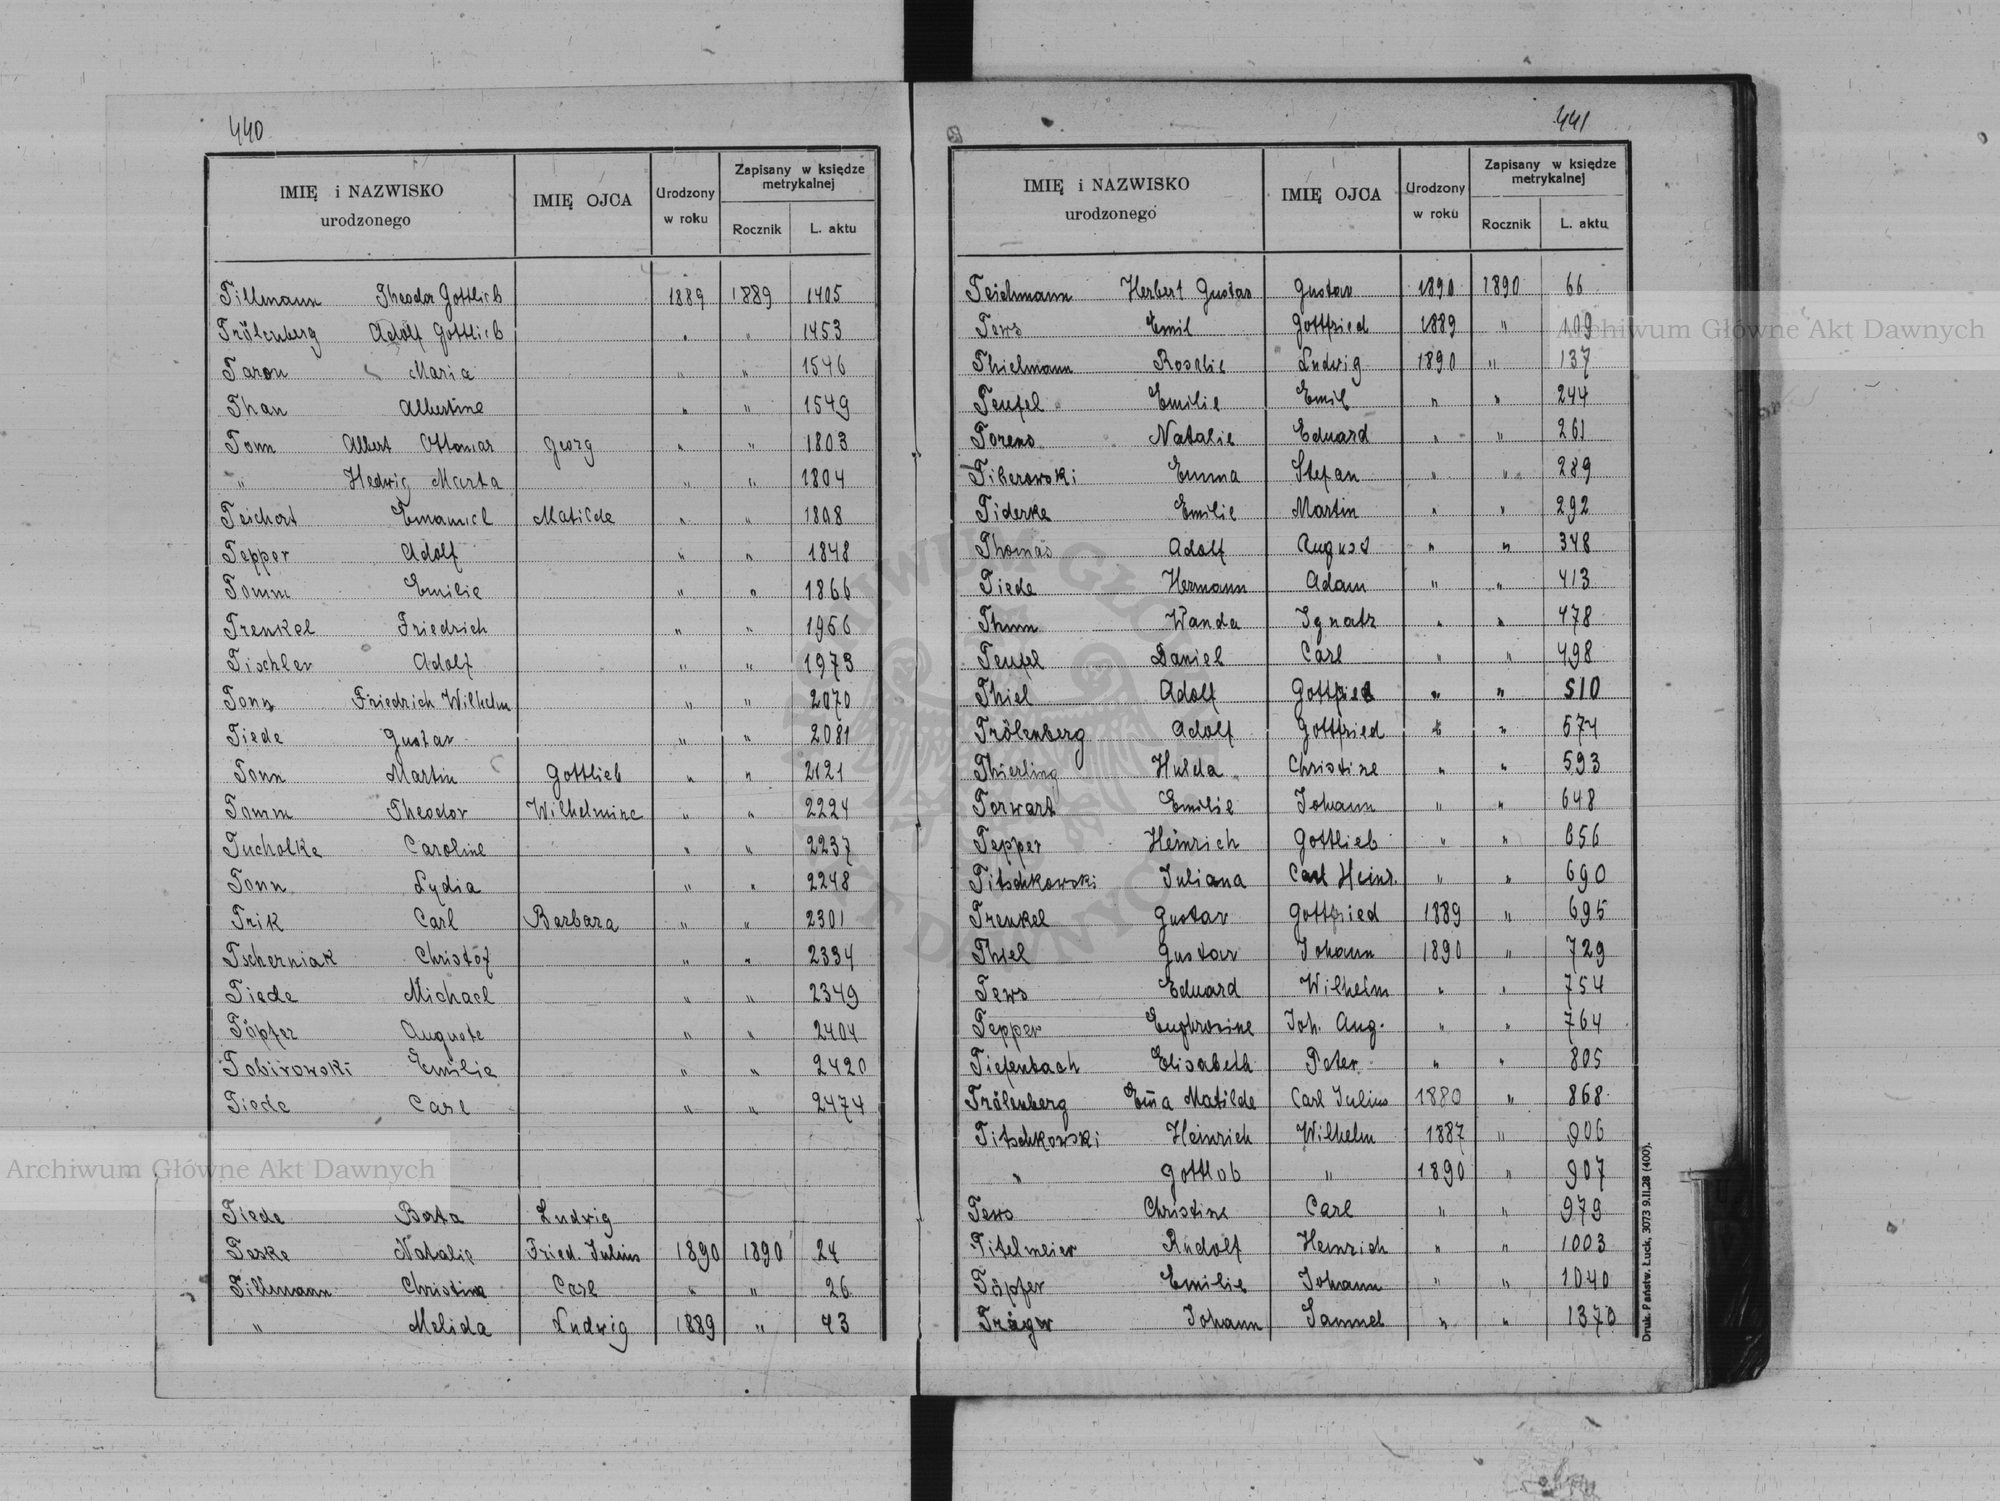 440
IMIĘ i NAZWISKO urodzonego IMIĘ OJCA Urodzony w roku Zapisany w księdze metrykalnej Rocznik L. aktu
Tillmann Theodor Gottlieb 1889 1889 1405
Trölenberg Adolf Gottlieb " " 1453
Taron Maria " " 1546
Than Albertine " " 1549
Tonn Albert Ottomar Georg " " 1803
" Hedwig Marta " " 1804
Teichert Emanuel Matilde " " 1808
Tepper Adolf " " 1848
Tomm Emilie " " 1866
Trenkel Friedrich " " 1956
Tischler Adolf " " 1973
Tonn Friedrich Wilhelm " " 2070
Tiede Gustav " " 2081
Tonn Martin Gottlieb " " 2121
Tomm Theodor Wilhelmine " " 2224
Tucholke Caroline " " 2237
Tonn Lydia " " 2248
Trik Carl Barbara " " 2301
Tscherniak Christof " " 2334
Tiede Michael " " 2349
Töpfer Auguste " " 2404
Tobirowski Emilie " " 2420
Tiede Carl " " 2474
Tiede Berta Ludwig
Teske Natalie Fried. Julius 1890 1890 24
Tillmann Christina Carl " " 26
" Melida Ludwig 1889 " 43
441
IMIĘ i NAZWISKO urodzonego IMIĘ OJCA Urodzony w roku Zapisany w księdze metrykalnej Rocznik L. aktu
Teichmann Herbert Gustav Gustav 1890 1890 66
Tews Emil Gottfried 1889 " 109
Thielmann Rosalie Ludwig 1890 " 137
Teufel Emilie Emil " " 244
Toreno Natalie Eduard " " 261
Tiberowski Emma Stefan " " 289
Tiderke Emilie Martin " " 292
Thomas Adolf August " " 348
Tiede Hermann Adam " " 413
Thum Wanda Ignatz " " 478
Teufel Daniel Carl " " 498
Thiel Adolf Gottfried " " 510
Trölenberg Adolf Gottfried " " 574
Thierling Hulda Christine " " 593
Torwart Emilie Johann " " 648
Tepper Heinrich Gottlieb " " 656
Titschkowski Juliana Carl Heinr. " " 690
Trenkel Gustav Gottfried 1889 " 695
Thiel Gustav Johann 1890 " 729
Tews Eduard Wilhelm " " 754
Tepper Euphrosine Joh. Aug. " " 764
Tiefenbach Elisabeth Peter " " 805
Trölenberg Em̄a Matilde Carl Julius 1880 " 868
Titschkowski Heinrich Wilhelm 1887 " 906
" Gottlob " 1890 " 907
Tews Christine Carl " " 979
Titelmeier Rudolf Heinrich " " 1003
Töpfer Emilie Johann " " 1040
Träger Johann Samuel " " 1370
Druk. Państw. Łuck, 3073 9.II.28 (400).
Archiwum Główne Akt Dawnych
Archiwum Główne Akt Dawnych
ARCHIWUM GŁÓWNE AKT DAWNYCH